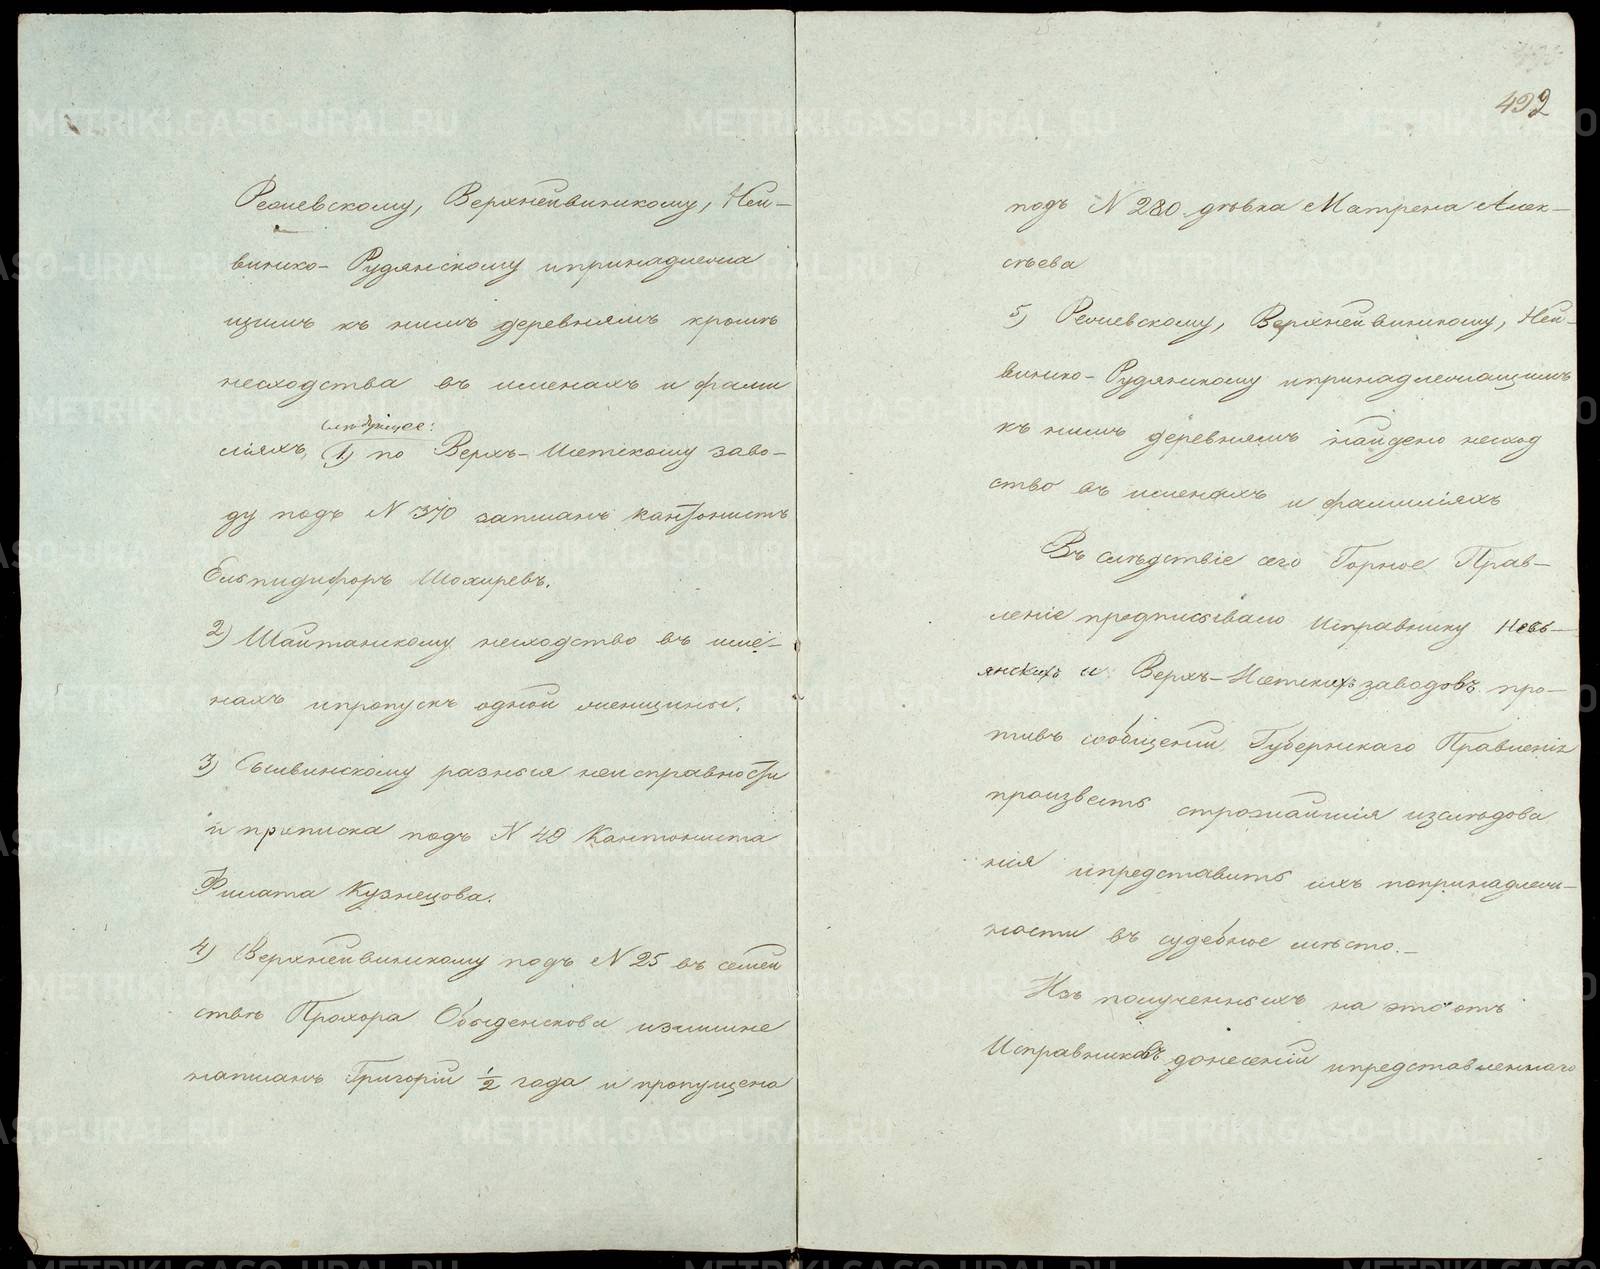 Режевскому, Верхнейвинскому, Ней-
винско-Рудянскому и принадлежа
щимъ къ нимъ деревнямъ кромѣ
несходства въ именахъ и фами
слѣдующее:
ліяхъ, 1) по Верхъ-Исетскому заво-
ду подъ N 370 записанъ кантонистъ
Елпидифоръ Шохиревъ.
2) Шайтанскому несходство въ име-
нахъ и пропускъ одной женщины.
3) Сылвинскому разныя неисправности
и приписка подъ N 49 Кантониста
Филата Кузнецова.
4) Верхнейвинскому подъ N 25 въ семей
ствѣ Прохора Обыденскова излишне
написанъ Григорій 1/2 года и пропущена
492
подъ N 280 дѣвка Матрена Алек-
сѣева
5) Режевскому, Верхнейвинскому, Ней-
винско-Рудянскому и принадлежащимъ
къ нимъ деревнямъ найдено несход
ство въ именахъ и фамиліяхъ
Въ слѣдствіе сего Горное Прав-
леніе предписывало Исправнику Невь-
янскихъ и Верхъ-Исетскихъ заводовъ про-
тивъ сообщеній Губернскаго Правленія
произвесть строжайшія изслѣдова
нія и представить ихъ по принадлеж-
ности въ судебное мѣсто.-
Изъ полученныхъ на это отъ
Исправниковъ донесеній и представленнаго
METRIKI.GASO-URAL.RU